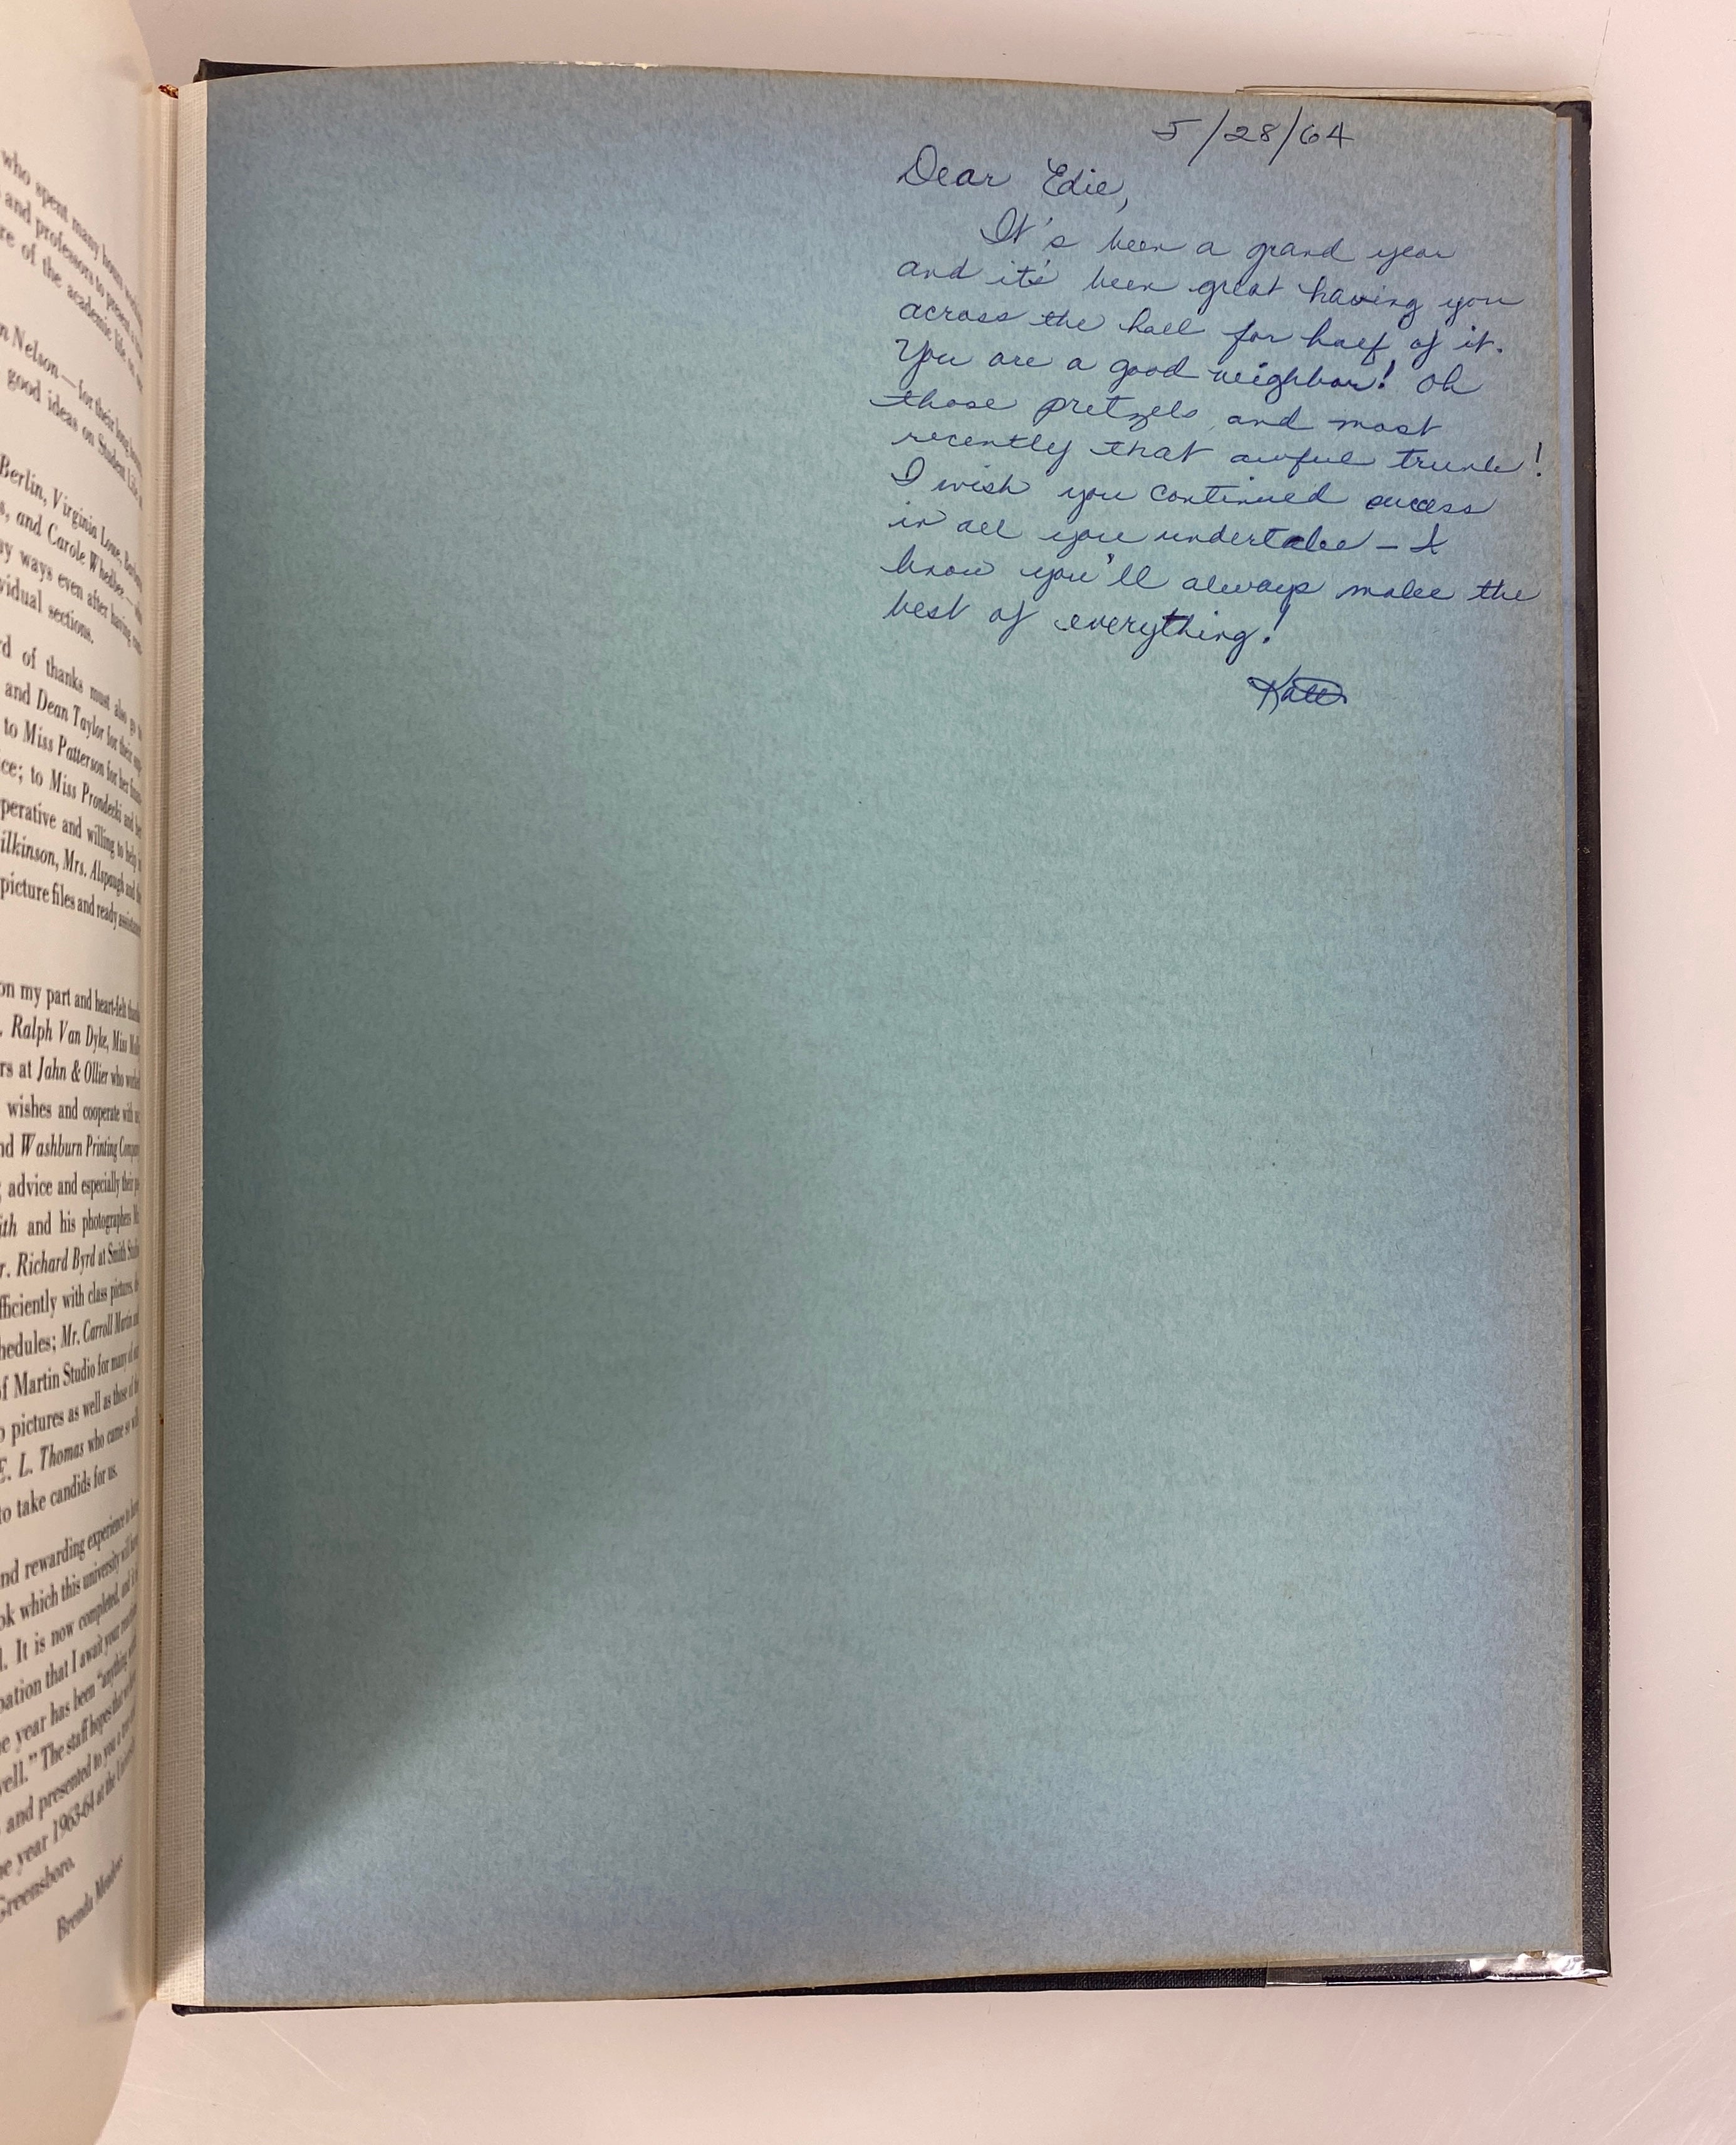 who spent many hours
and professors to present a
re of the academic life on
n Nelson — for their long
good ideas on Student Life
Berlin, Virginia Lowe,
s, and Carole Whedbee —
ny ways even after having
vidual sections.
rd of thanks must also go
and Dean Taylor for their
to Miss Patterson for her
ce; to Miss Prondecki and
perative and willing to help
ilkinson, Mrs. Alspaugh and the
picture files and ready
on my part and heart-felt
. Ralph Van Dyke, Miss
rs at Jahn & Ollier who
wishes and cooperate with
nd Washburn Printing
; advice and especially their
ith and his photographers
r. Richard Byrd at Smith
fficiently with class pictures,
hedules; Mr. Carroll Martin and
of Martin Studio for many of
p pictures as well as those of the
E. L. Thomas who came so
to take candids for us.
nd rewarding experience to
ok which this university will
l. It is now completed, and
pation that I await your
he year has been "anything
well." The staff hopes that
and presented to you a
he year 1963-64 at the
Greensboro.
Brenda
5/28/64
Dear Edie,
It's been a grand year
and it's been great having you
across the hall for half of it.
You are a good neighbor! Oh
those pretzels and most
recently that awful trunk!
I wish you continued success
in all you undertake – I
know you'll always make the
best of everything!
Kate